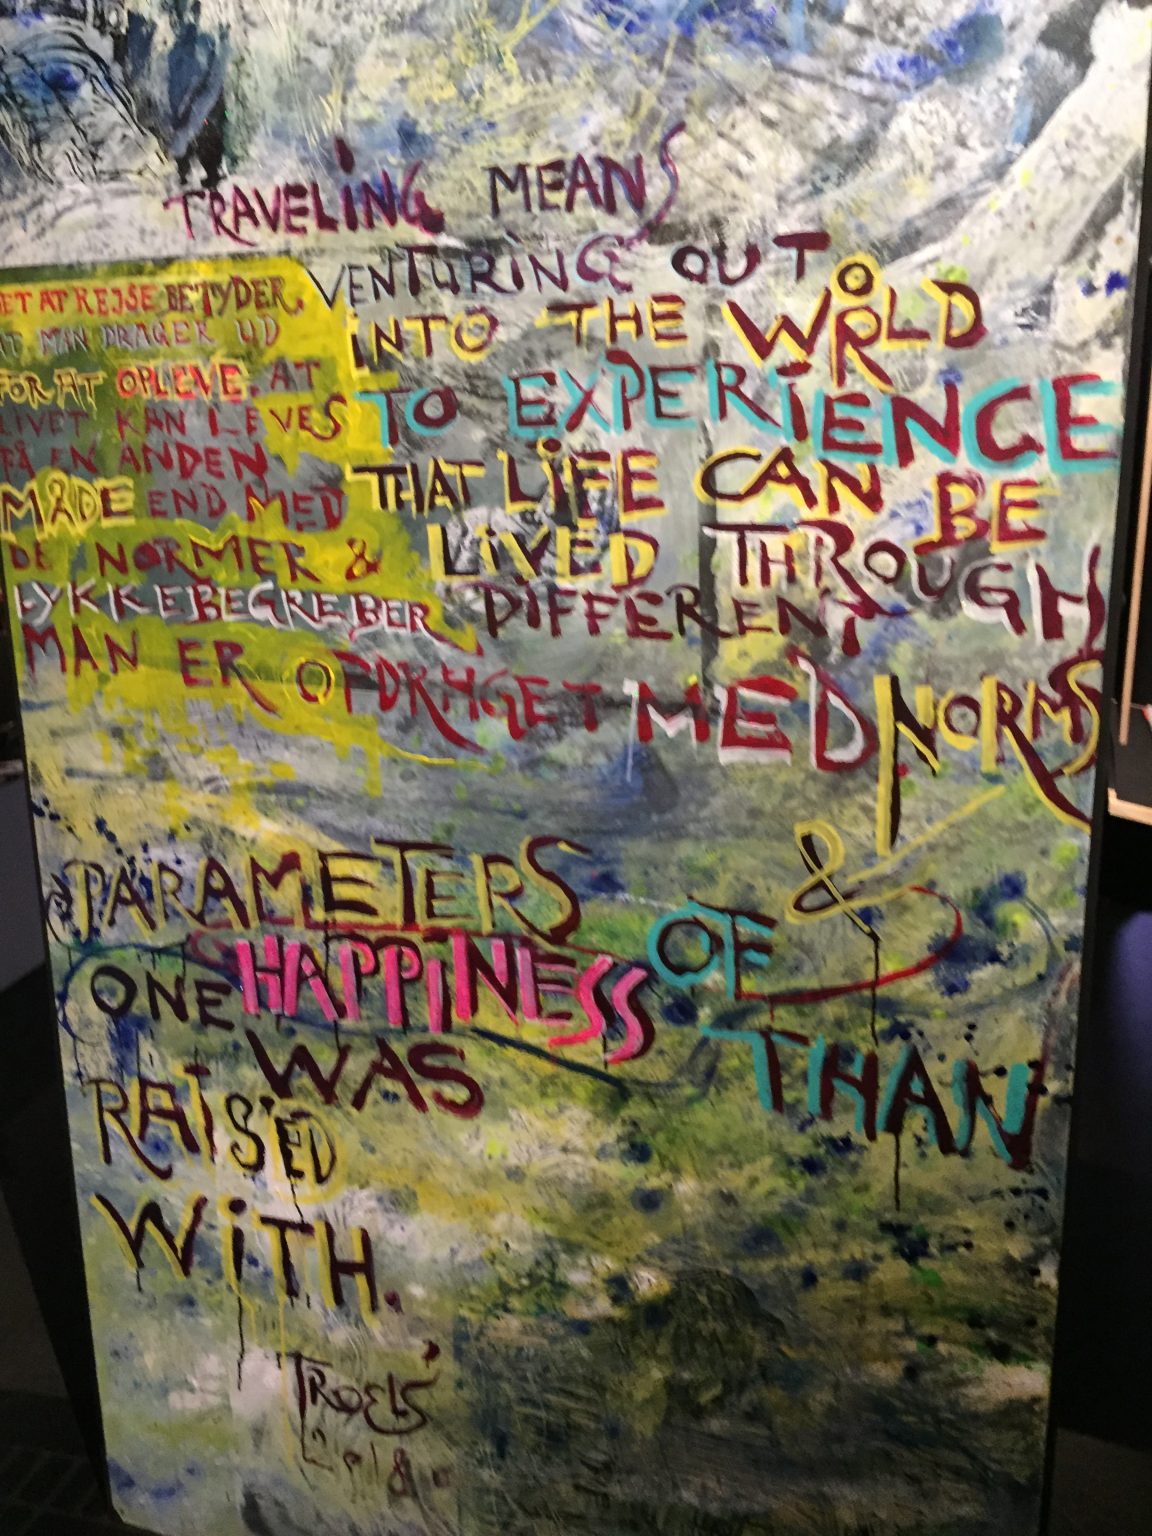 TRAVELING MEANS
VENTURING OUT
INTO THE WORLD
TO EXPERIENCE
THAT LIFE CAN BE
LIVED THROUGH
DIFFERENT
NORMS
&
PARAMETERS
OF
HAPPINESS
THAN
ONE
WAS
RAISED
WITH.
ET AT REJSE BETYDER,
AT MAN DRAGER UD
FOR AT OPLEVE, AT
LIVET KAN LEVES
PÅ EN ANDEN
MÅDE END MED
DE NORMER &
LYKKEBEGREBER
MAN ER OPDRAGET MED
TROELS
2018